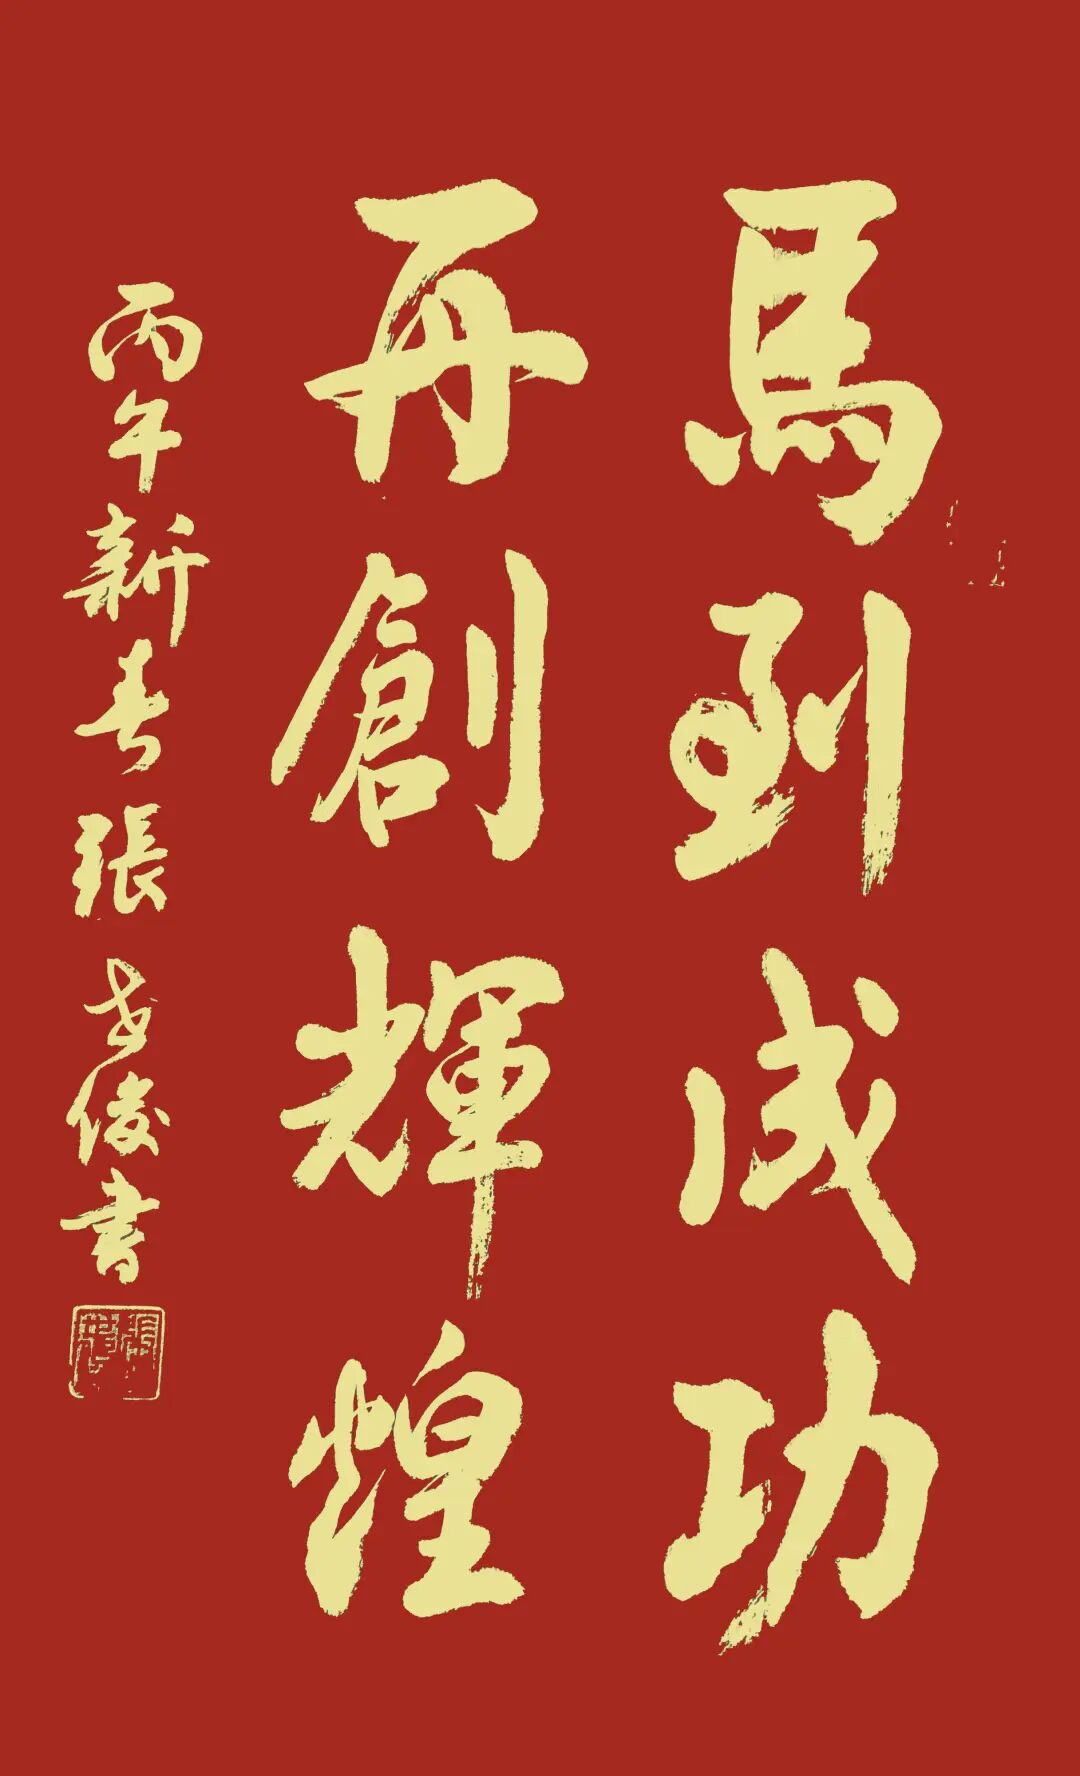 馬到成功
再創輝煌
丙午新春張世俊書